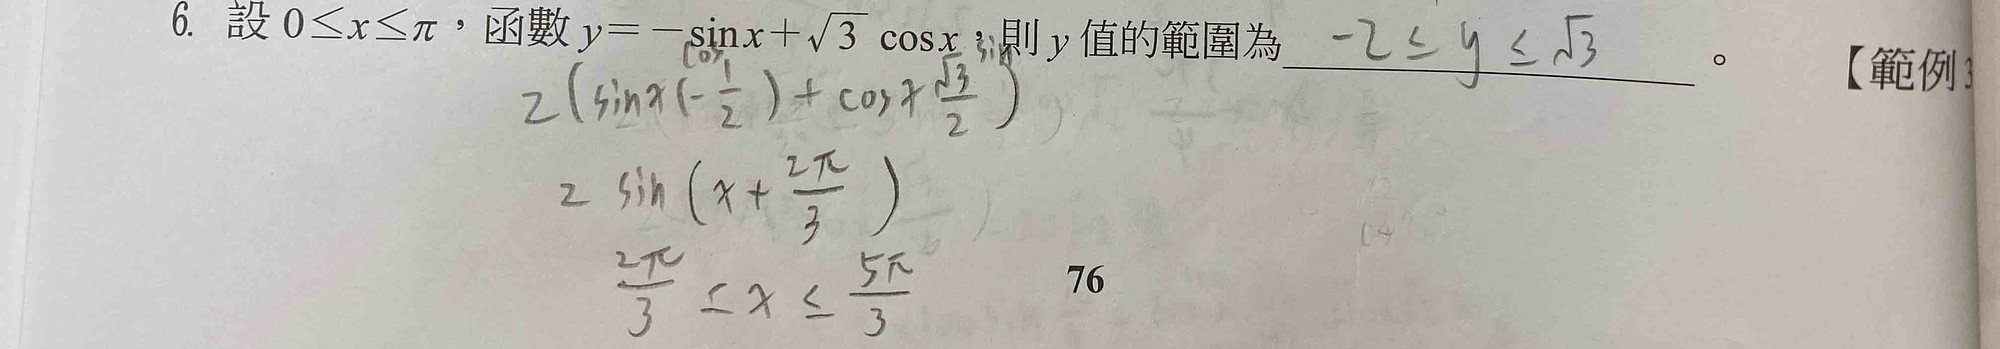 6. 設 0≤x≤π，函數 y=-sinx+√3 cosx，則 y 值的範圍為 -2 ≤ y ≤ √3 。 【範例3
cos sin
2(sinx(-1/2)+cosx √3/2)
2 sin(x+2π/3)
2π/3 ≤ x ≤ 5π/3
76